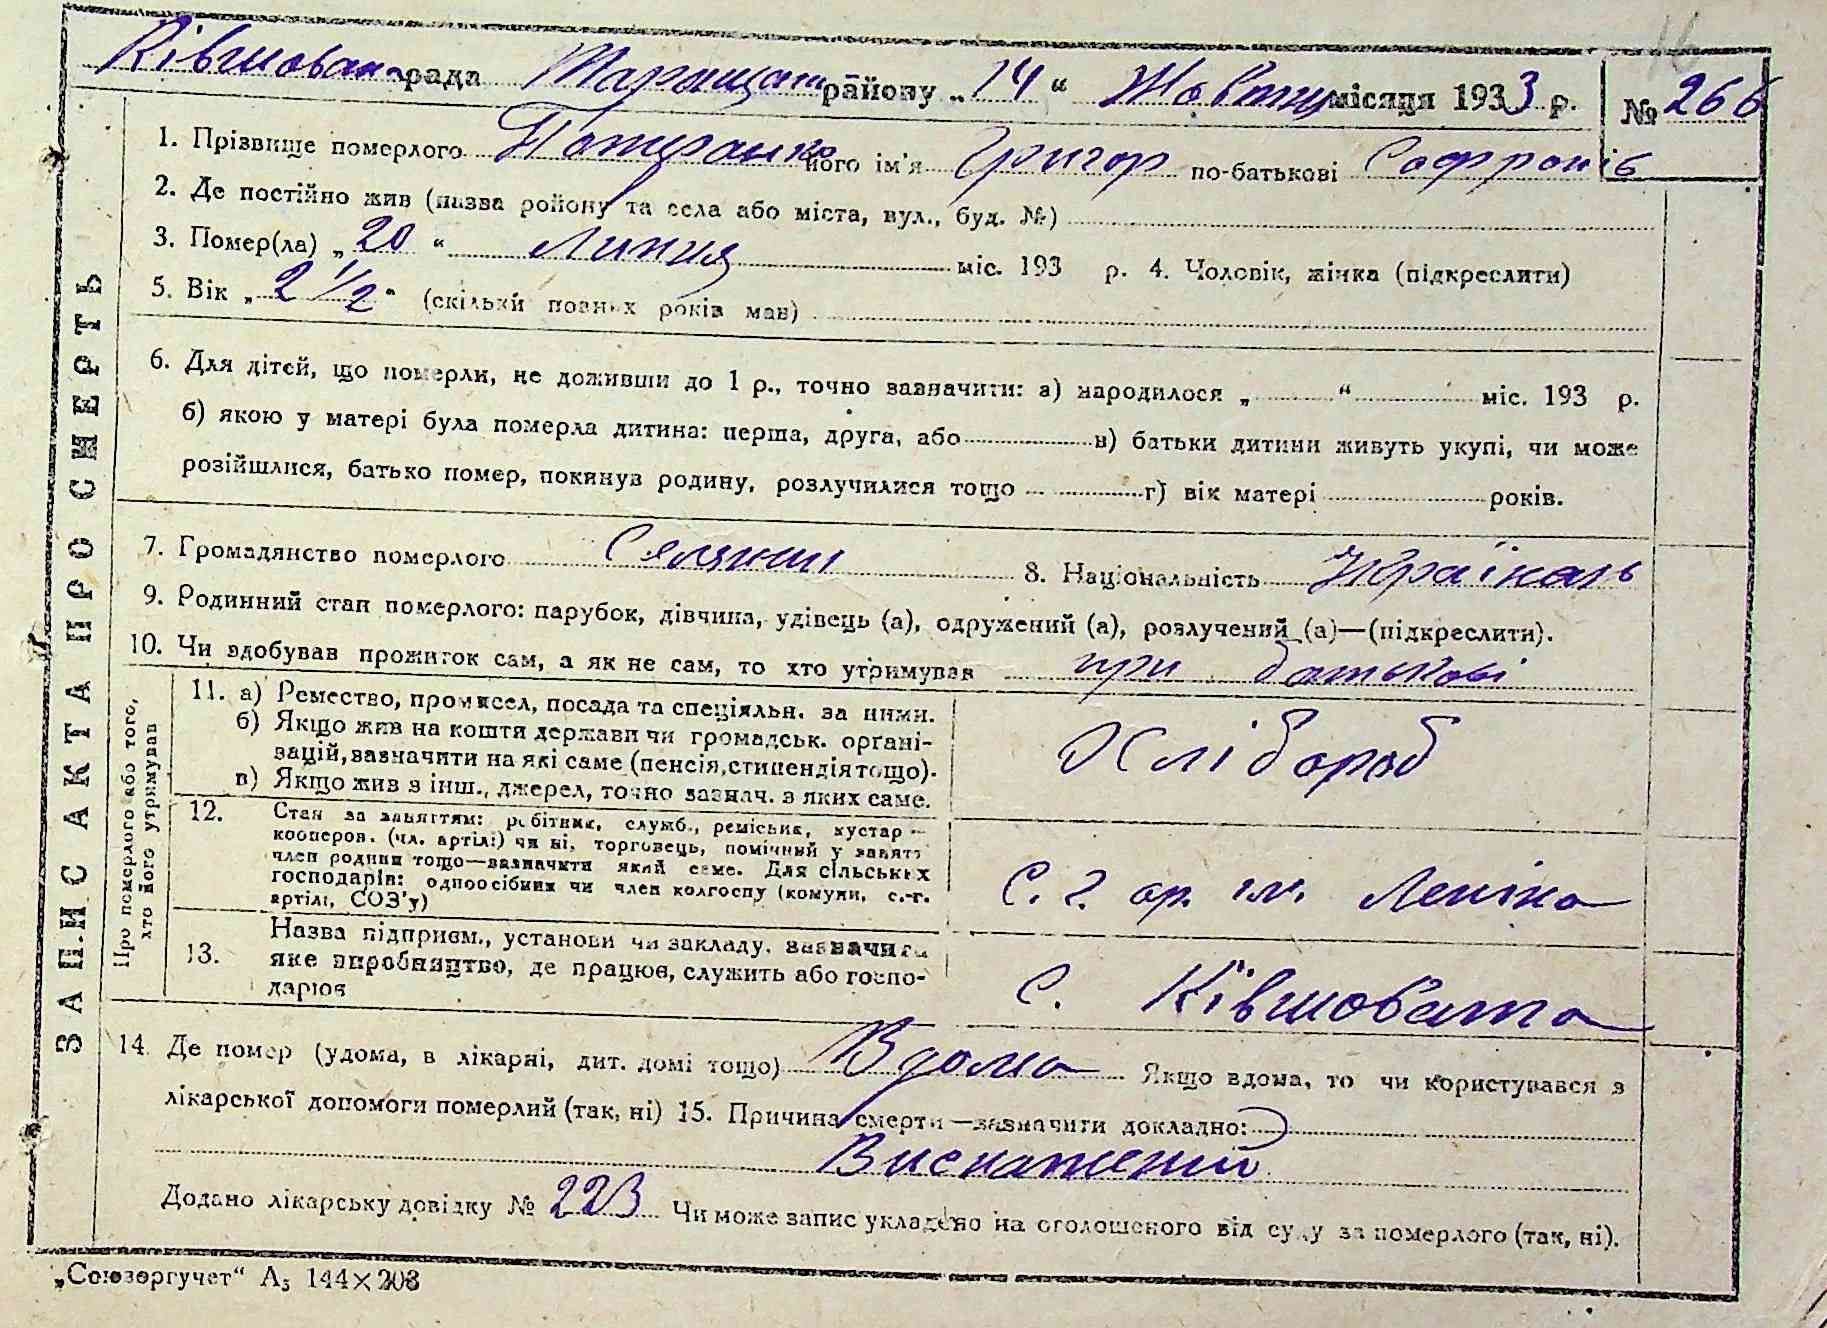 16
Ківшовата рада Таращан району „14“ Жовтня місяця 1933 р. № 266
1. Прізвище померлого його ім'я Григор по-батькові Софронів
2. Де постійно жив (назва району та села або міста, вул., буд. №)
3. Помер(ла) „20“ Липня міс. 193 р. 4. Чоловік, жінка (підкреслити)
5. Вік „2 1/2“ (скільки повних років мав)
6. Для дітей, що померли, не доживши до 1 р., точно зазначити: а) народилося „ “ міс. 193 р.
б) якою у матері була померла дитина: перша, друга, або в) батьки дитини живуть укупі, чи може
розійшлися, батько помер, покинув родину, розлучилися тощо г) вік матері років.
7. Громадянство померлого Селянин 8. Національність Українець
9. Родинний стан померлого: парубок, дівчина, удівець (а), одружений (а), розлучений (а)—(підкреслити).
10. Чи здобував прожиток сам, а як не сам, то хто утримував при батькові
ЗАПИС АКТА ПРО СМЕРТЬ
Про померлого або того,
хто його утримував
11. а) Ремество, промисел, посада та спеціяльн. за ними.
б) Якщо жив на кошти держави чи громадськ. органі-
зацій, вазначити на які саме (пенсія, стипендія тощо).
в) Якщо жив з інш., джерел, точно зазнач. з яких саме.
Хлібороб
12. Стан за заняттям: робітник, служб., ремісник, кустар—
кооперов. (чл. артілі) чи ні, торговець, помічний у занятт
член родини тощо—вазначити який саме. Для сільських
господарів: одноосібник чи член колгоспу (комуни, с.-г.
артілі, СОЗ'у)
С. г. ар. ім. Леніна
13. Назва підприєм., установи чи закладу. зазначити
яке виробництво, де працює, служить або госпо-
дарює
С. Ківшовата
14. Де помер (удома, в лікарні, дит. домі тощо) Вдома Якщо вдома, то чи користувався з
лікарської допомоги померлий (так, ні) 15. Причина смерти—зазначити докладно:
Виснажений
Додано лікарську довідку № 223 Чи може запис укладено на оголошеного від суду за померлого (так, ні).
„Союзоргучет“ А₅ 144×203